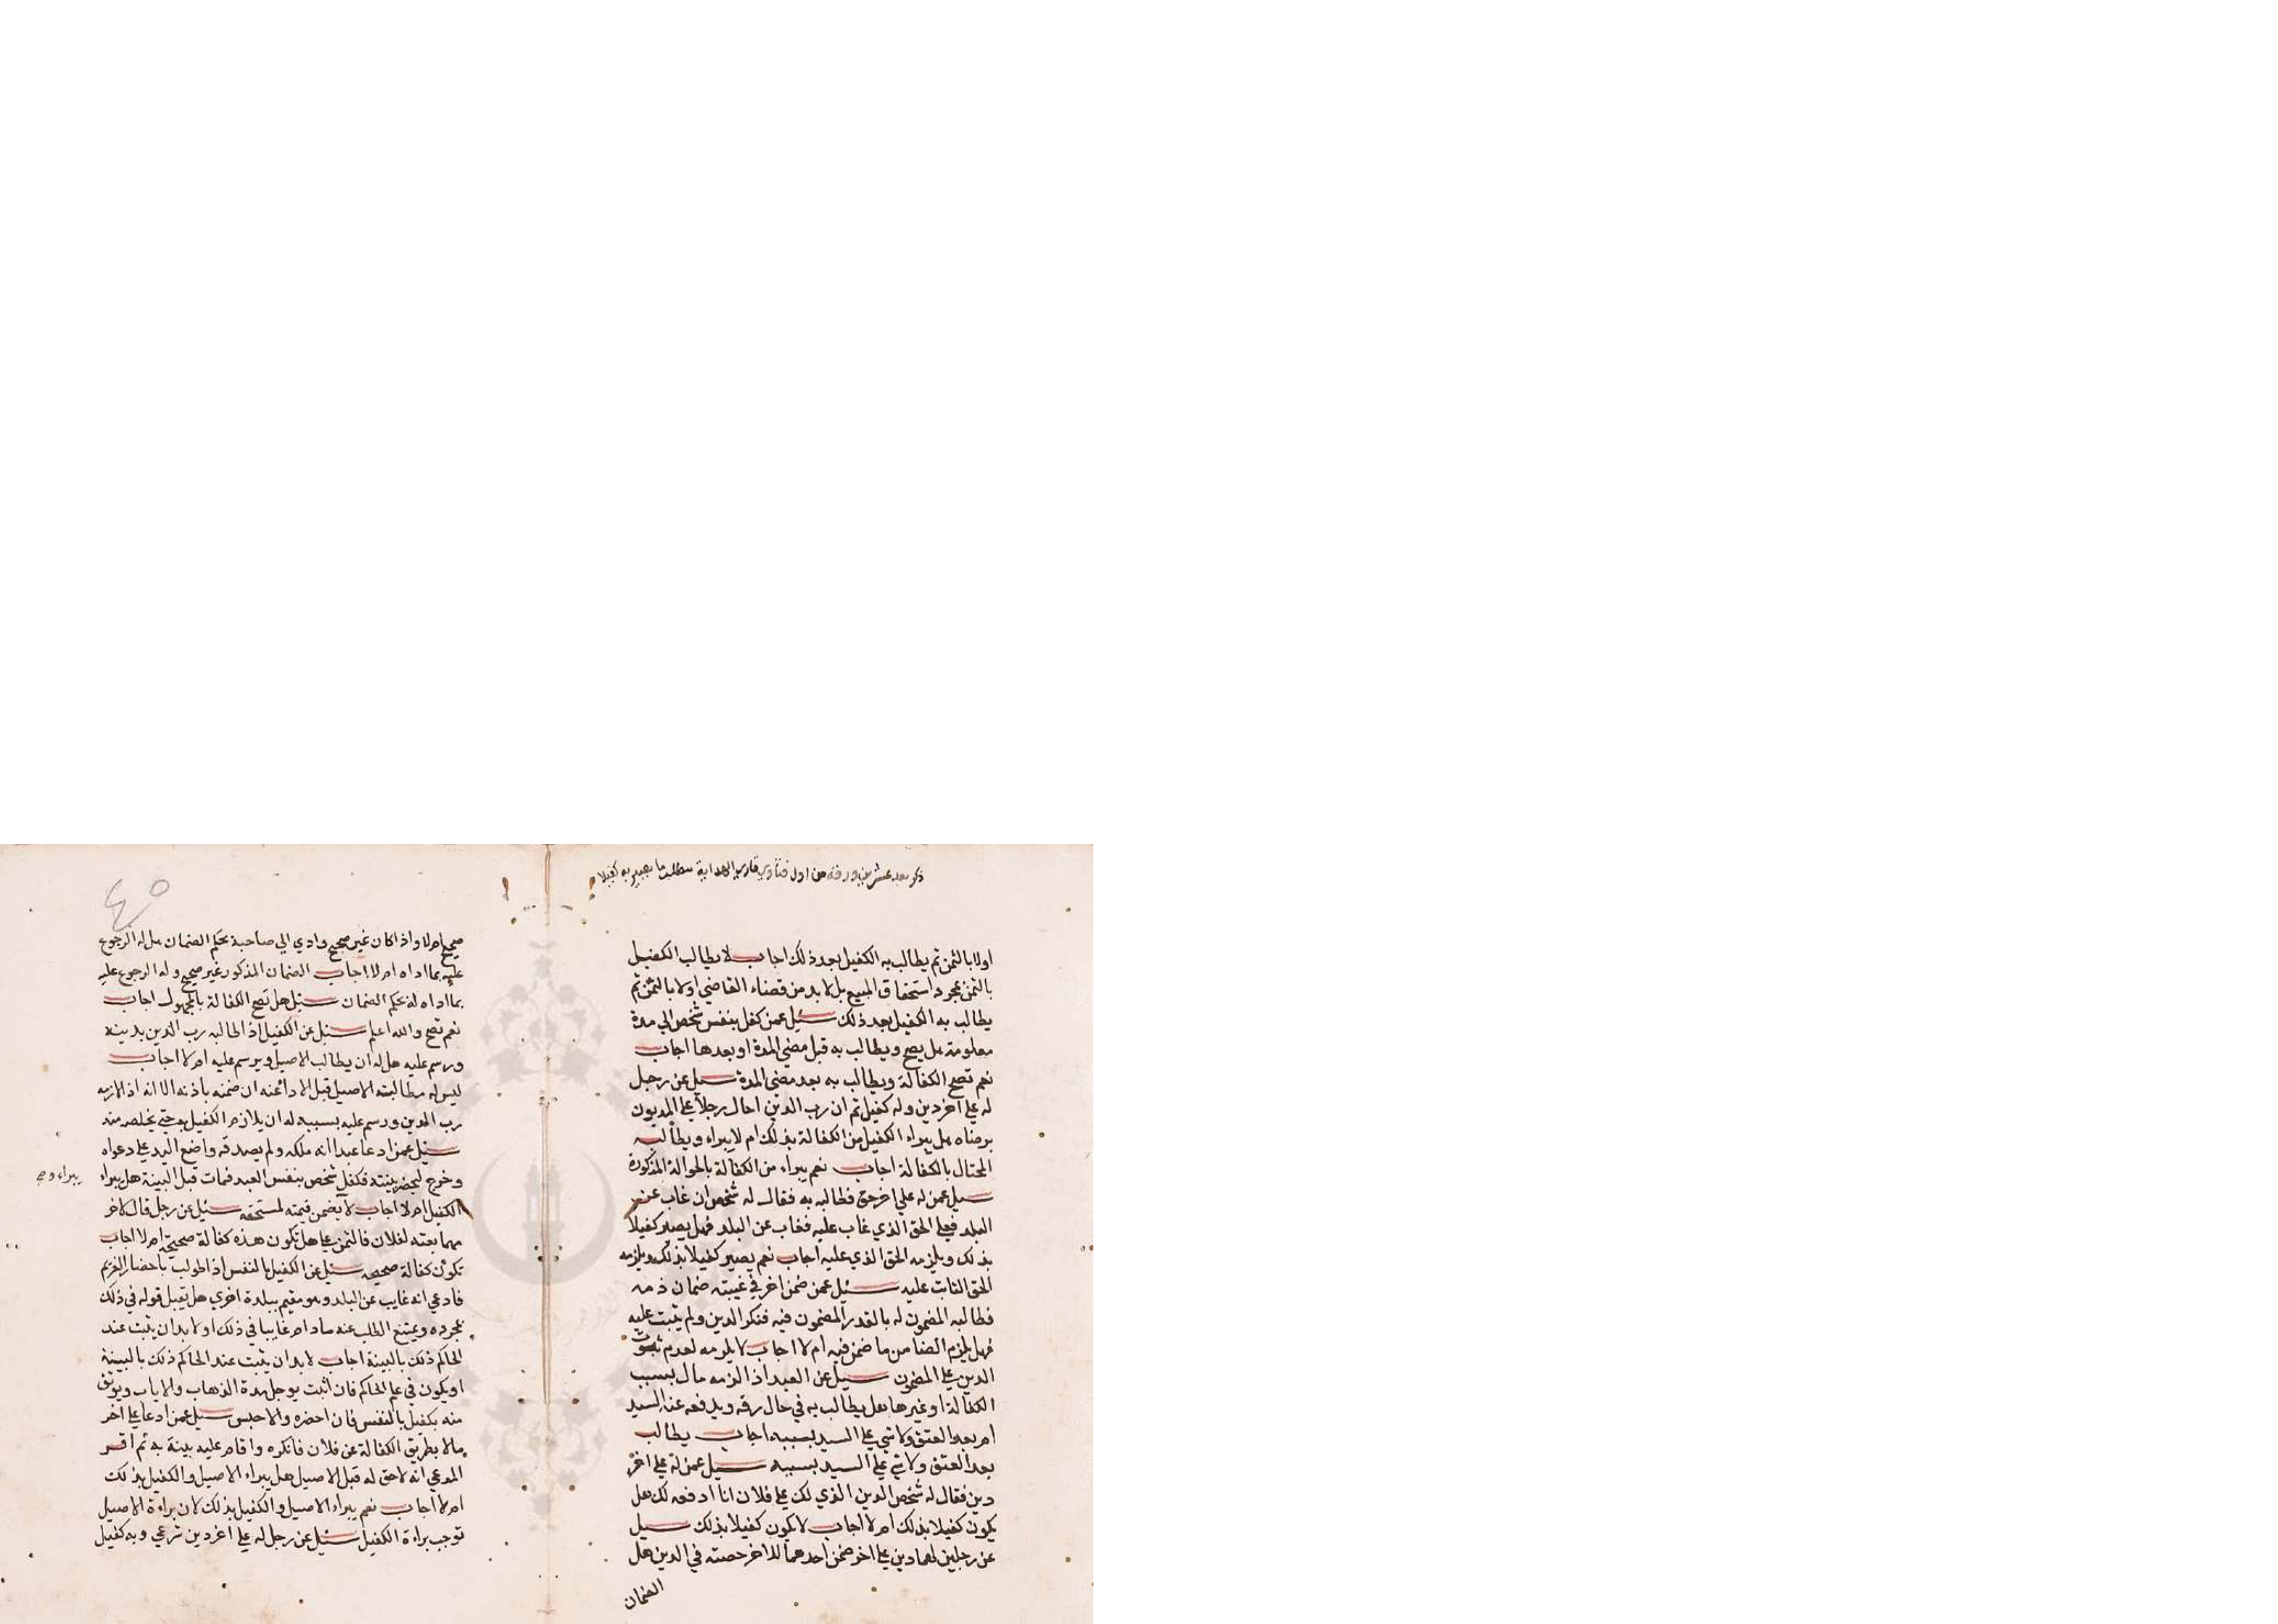 ذكر بعد عشرين ورقة من اول فتاوي قاري الهداية مطلب ما يصير به كفيلا
اولا بالثمن ثم يطالب به الكفيل بعد ذلك اجاب لا يطالب الكفيل
بالثمن بمجرد استحقاق المبيع بل لا بد من قضاء القاضي اولا بالثمن ثم
يطالب به الكفيل بعد ذلك سئيل عمن كفل بنفس شخص الي مدة
معلومة هل يصح ويطالب به قبل مضي المدة او بعدها اجاب
نعم تصح الكفالة ويطالب به بعد مضي المدة سيل عن رجل
له علي اخر دين وله كفيل ثم ان رب الدين احال رجلا علي المديون
برضاه هل يبراء الكفيل من الكفالة بذلك ام لا يبراء ويطالبه
المحتال بالكفالة اجاب نعم يبراء من الكفالة بالحوالة المذكورة
سيل عمن له علي اخر حق فطالبه به فقال له شخص ان غاب عن
البلد فعلي الحق الذي غاب عليه فغاب عن البلد فهل يصير كفيلا
بذلك ويلزمه الحق الذي عليه اجاب نعم يصير كفيلا بذلك ويلزمه
الحق الثابت عليه سئيل عمن ضمن اخر في غيبته ضمان ذمه
فطالبه المضمون له بالقدر المضمون فيه فنكر الدين ولم يثبت عليه
فهل يلزم الضامن ما ضمن فيه ام لا اجاب لا يلزمه لعدم ثبوت
الدين علي المضمون سيل عن العبد اذا لزمه مال بسبب
الكفالة او غيرها هل يطالب به في حال رقه ويدفعه عنه السيد
ام بعد العتق ولا شي علي السيد بسببه اجاب يطالب
بعد العتق ولا شي علي السيد بسببه سئيل عمن له علي اخر
دين فقال له شخص الدين الذي لك علي فلان انا ادفعه لك هل
يكون كفيلا بذلك ام لا اجاب لا يكون كفيلا بذلك سيل
عن رجلين لهما دين علي اخر ضمن احدهما للاخر حصته في الدين هل
الضمان
٤٥
صحيح ام لا واذا كان غير صحيح وادي الي صاحبة بحكم الضمان هل له الرجوع
عليه بما اداه ام لا اجاب الضمان المذكور غير صحيح وله الرجوع عليه
بما اداه له بحكم الضمان سئيل هل تصح الكفالة بالمجهول اجاب
نعم تصح والله اعلم سئيل عن الكفيل اذا طالبه رب الدين بدينه
ورسم عليه هل له ان يطالب الاصيل ويرسم عليه ام لا اجاب
ليس له مطالبته الاصيل قبل الاداء عنه ان ضمنه باذنه الا انه اذا لازمه
رب الدين ورسم عليه بسببه له ان يلازم الكفيل حتي يخلصه منه
سئيل عمن ادعا عبدا انه ملكه ولم يصدقه واضع اليد علي دعواه
وخرج ليحضر بينته فكفل شخص بنفس العبد فمات قبل البينة هل يبراء
يبراء
الكفيل ام لا اجاب لا يضمن قيمته لمستحقه سئيل عن رجل قال لاخر
مهما بعته لفلان فالثمن علي هل تكون هذه كفالة صحيحة ام لا اجاب
تكون كفالة صحيحه سئيل عن الكفيل بالنفس اذا طولب باحضار الغريم
فادعي انه غايب عن البلد وهو مقيم ببلدة اخري هل يقبل قوله في ذلك
بمجرده ويمتنع الطلب عنه مادام غايبا في ذلك او لا بد ان يثبت عند
الحاكم ذلك بالبينة اجاب لا بد ان يثبت عند الحاكم ذلك بالبينة
او يكون في علم الحاكم فان اثبت يوجل مدة الذهاب والاياب ويوثق
منه بكفيل بالنفس فان احضره والا حبس سيل عمن ادعا علي اخر
مالا بطريق الكفالة عن فلان فانكره واقام عليه بينة به ثم اقر
المدعي انه لا حق له قبل الاصيل هل يبراء الاصيل والكفيل بذلك
ام لا اجاب نعم يبراء الاصيل والكفيل بذلك لان براءة الاصيل
توجب براءة الكفيل سئيل عن رجل له علي اخر دين شرعي وبه كفيل